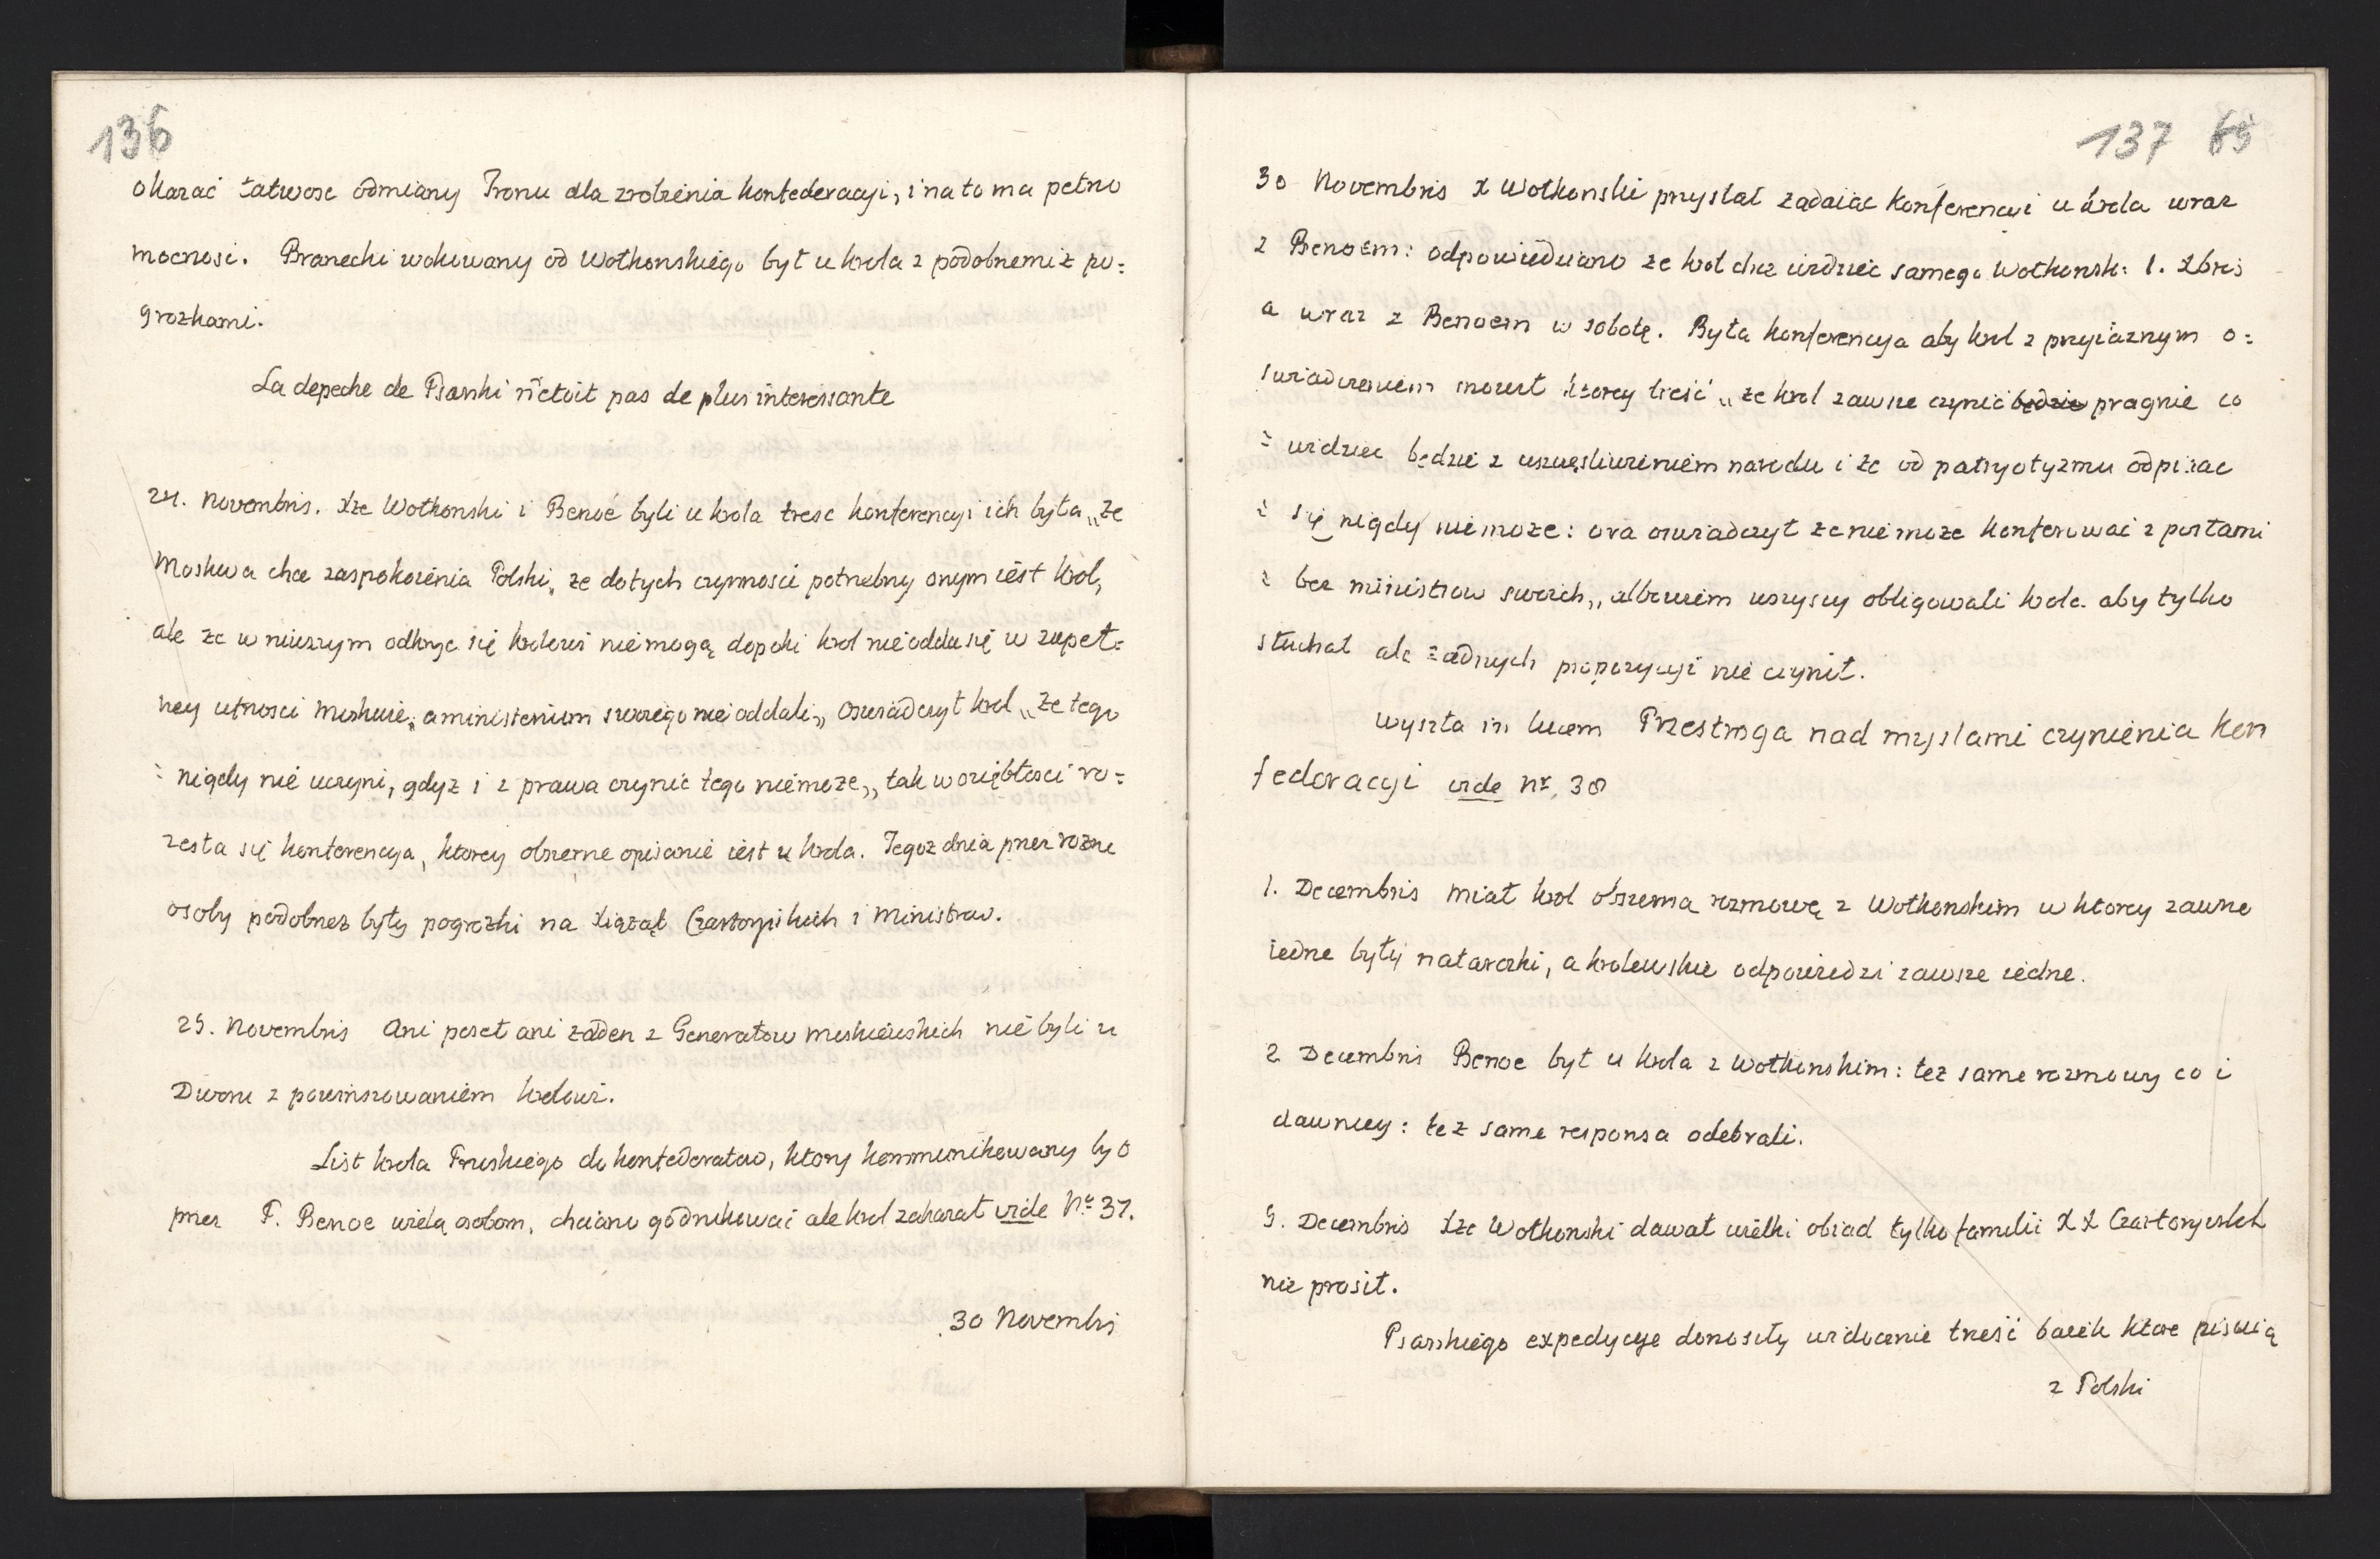 136
okazać łatwosc odmiany Tronu dla zrobienia konfederacyi, i na to ma pełno
mocnosc. Branecki wokowany od Wołkonskiego był u krola z podobnemiz po=
grozkami.
La depeche de Psarski n'etoit pas de plus interessante
24. Novembris. Xże Wołkonski i Benoé byli u krola tresc konferencyi ich była „ze
Moskwa chce zaspokoienia Polski, ze do tych czynnosci potrzebny onym iest krol,
ale ze w niwszym odkryc się krolowi nie mogą dopoki krol nie odda się w zupeł=
ney ufnosci Moskwie, a ministerium swoiego nie oddali„ oswiadczył krol „ze tego
= nigdy nie uczyni, gdyz i z prawa czynic tego nie moze„ tak w oziębłosci ro=
zesła się konferencya, ktorey obszerne opisanie iest u krola. Tegoz dnia przez rozne
osoby podobnez były pogrozki na Xiążąt Czartoryskich i Ministrow.
25. Novembris Ani poseł ani zaden z Generałow moskiewskich nie byli u
Dworu z powinszowaniem krolowi.
List krola Pruskiego do konfederatow, ktory kommunikowany był
przez P. Benoe wielą osobom, chciano go drukowac ale krol zakazał vide Nr 37.
30 Novembris
137 65
30 Novembris X Wołkonski przysłał ządaiąc konferencyi u krola wraz
z Benoem: odpowiedziano ze krol chce widziec samego Wołkonsk: 1. Xbris
a wraz z Benoem w sobotę. Była konferencya aby krol z przyiaznym o=
swiadczeniem ktorey tresć „ze krol zawsze czynic będzie pragnie co
= widziec będzie z uszczęsliwieniem narodu i ze od patryotyzmu odpisac
= się nigdy nie moze: ora oswiadczył ze nie moze konferowac z posłami
= bez ministrow swoich„ albowiem wszyscy obligowali krola aby tylko
słuchał ale zadnych propozycyi nie czynił.
wyszła in lucem Przestroga nad myslami czynienia kon
federacyi vide nr. 38
1. Decembris miał krol obszerna rozmowę z Wołkonskim w ktorey zawsze
iedne były natarczki, a krolewskie odpowiedzi zawsze iedne.
2 Decembris Benoe był u krola z Wołkonskim: tez same rozmowy co i
dawniey: tez same responsa odebrali.
5. Decembris Xże Wołkonski dawał wielki obiad tylko familii XX Czartoryskich
nie prosił.
Psarskiego expedycye donosiły widocznie tresć baiek ktore piszą
z Polski